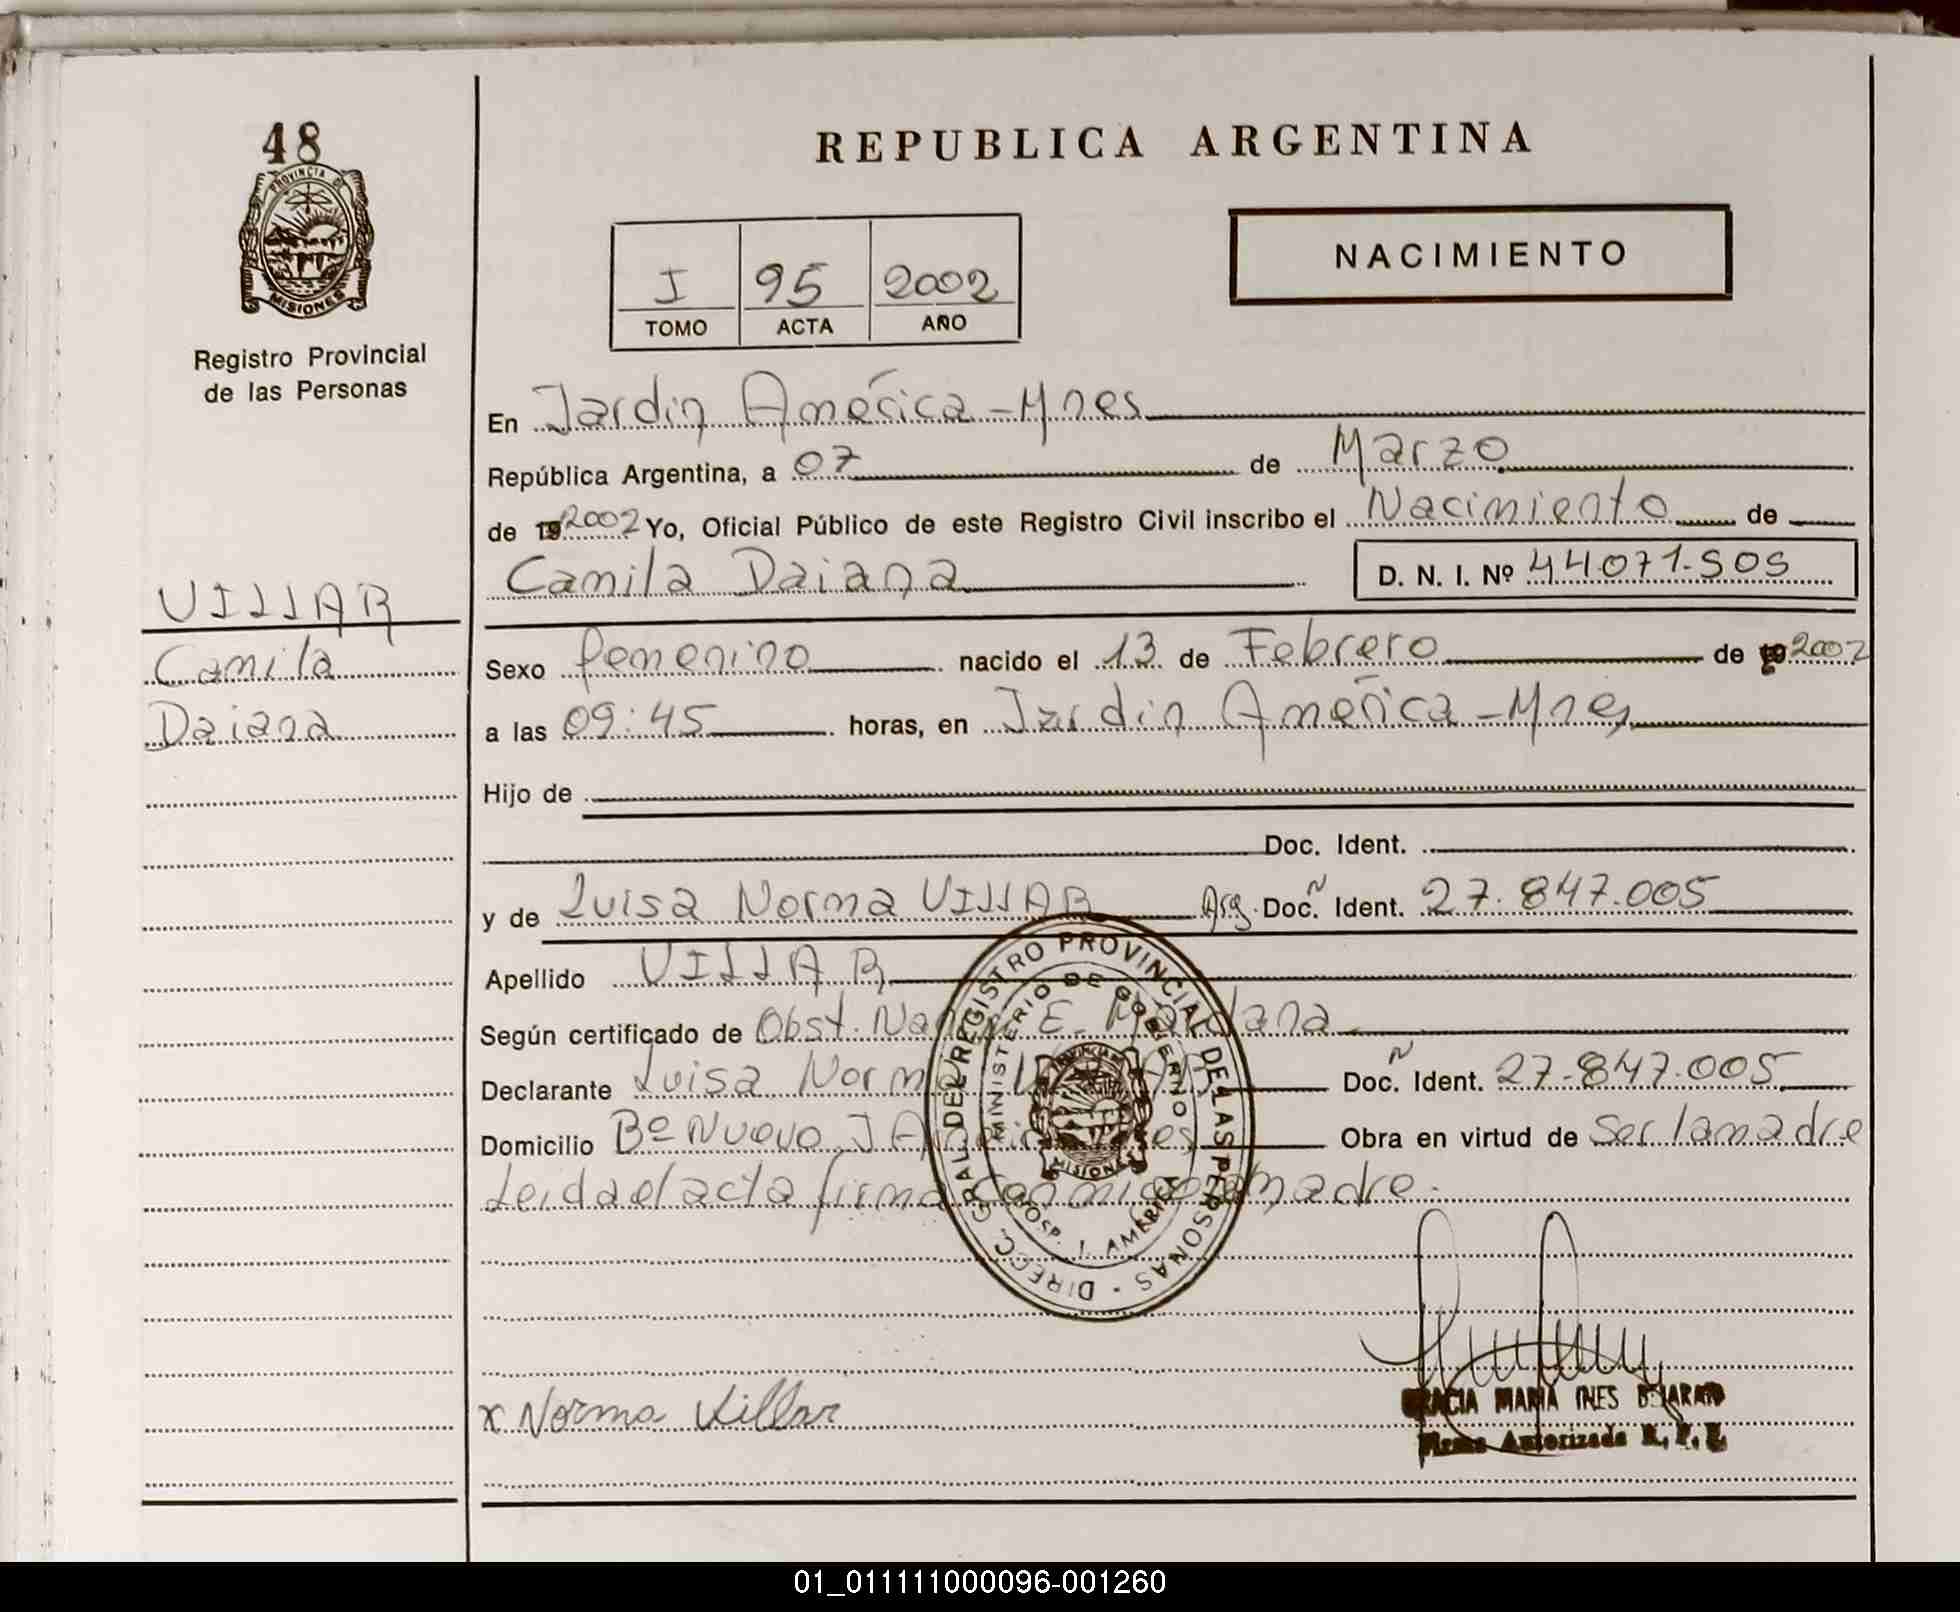 48
PROVINCIA DE
MISIONES
Registro Provincial
de las Personas
REPUBLICA ARGENTINA
NACIMIENTO
I 95 2002
TOMO ACTA AÑO
En Jardin América - Mnes
República Argentina, a 07 de Marzo
de 19 2002 Yo, Oficial Público de este Registro Civil inscribo el Nacimiento de
Camila Daiana D. N. I. Nº 44.071.505
VILLAR
Camila
Daiana
Sexo femenino nacido el 13 de Febrero de 19 2002
a las 09:45 horas, en Jardin América - Mnes
Hijo de
Doc. Ident.
y de Luisa Norma VILLAR Arg. Doc. Ñ Ident. 27.847.005
Apellido VILLAR
Según certificado de Obst. E.
Declarante Luisa Norma Doc. Ñ Ident. 27.847.005
Domicilio Bº Nuevo J. Obra en virtud de Ser la madre
Leida el acta firma conmigo madre.
DIRECC. GRAL. DEL REGISTRO PROVINCIAL DE LAS PERSONAS
MINISTERIO DE GOBIERNO
HOSP. J. AMERICA
PROVINCIA DE
MISIONES
x Norma Villar
GRACIA MARIA INES BEJARANO
Firma Autorizada R. P. P.
01_011111000096-001260